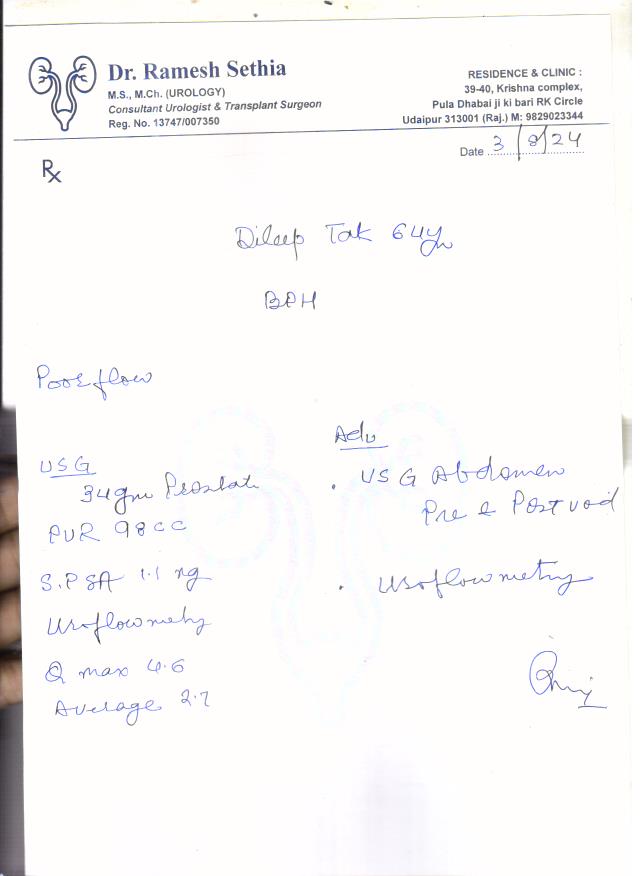 Dr. Ramesh Sethia
M.S., M.Ch. (UROLOGY)
Consultant Urologist & Transplant Surgeon
Reg. No. 13747/007350
RESIDENCE & CLINIC :
39-40, Krishna complex,
Pula Dhabai ji ki bari RK Circle
Udaipur 313001 (Raj.) M: 9829023344
Date 3/8/24
Rx
Dileep Tak 64yr
BPH
Poor flow
USG
34gm Prostate
PVR 98cc
S.PSA 1.1 ng
Uroflowmetry
Q max 4.6
Average 2.7
Adv
. USG Abdomen
Pre & Post void
. Uroflowmetry